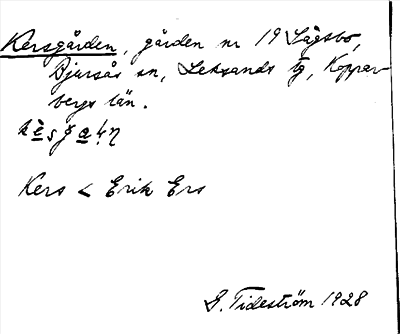 Kersgården, gården nr 19 Sågsbo,
Bjursås sn, Leksands tg, Koppar-
bergs län.
Kers < Erik Ers
S. Tideström 1928